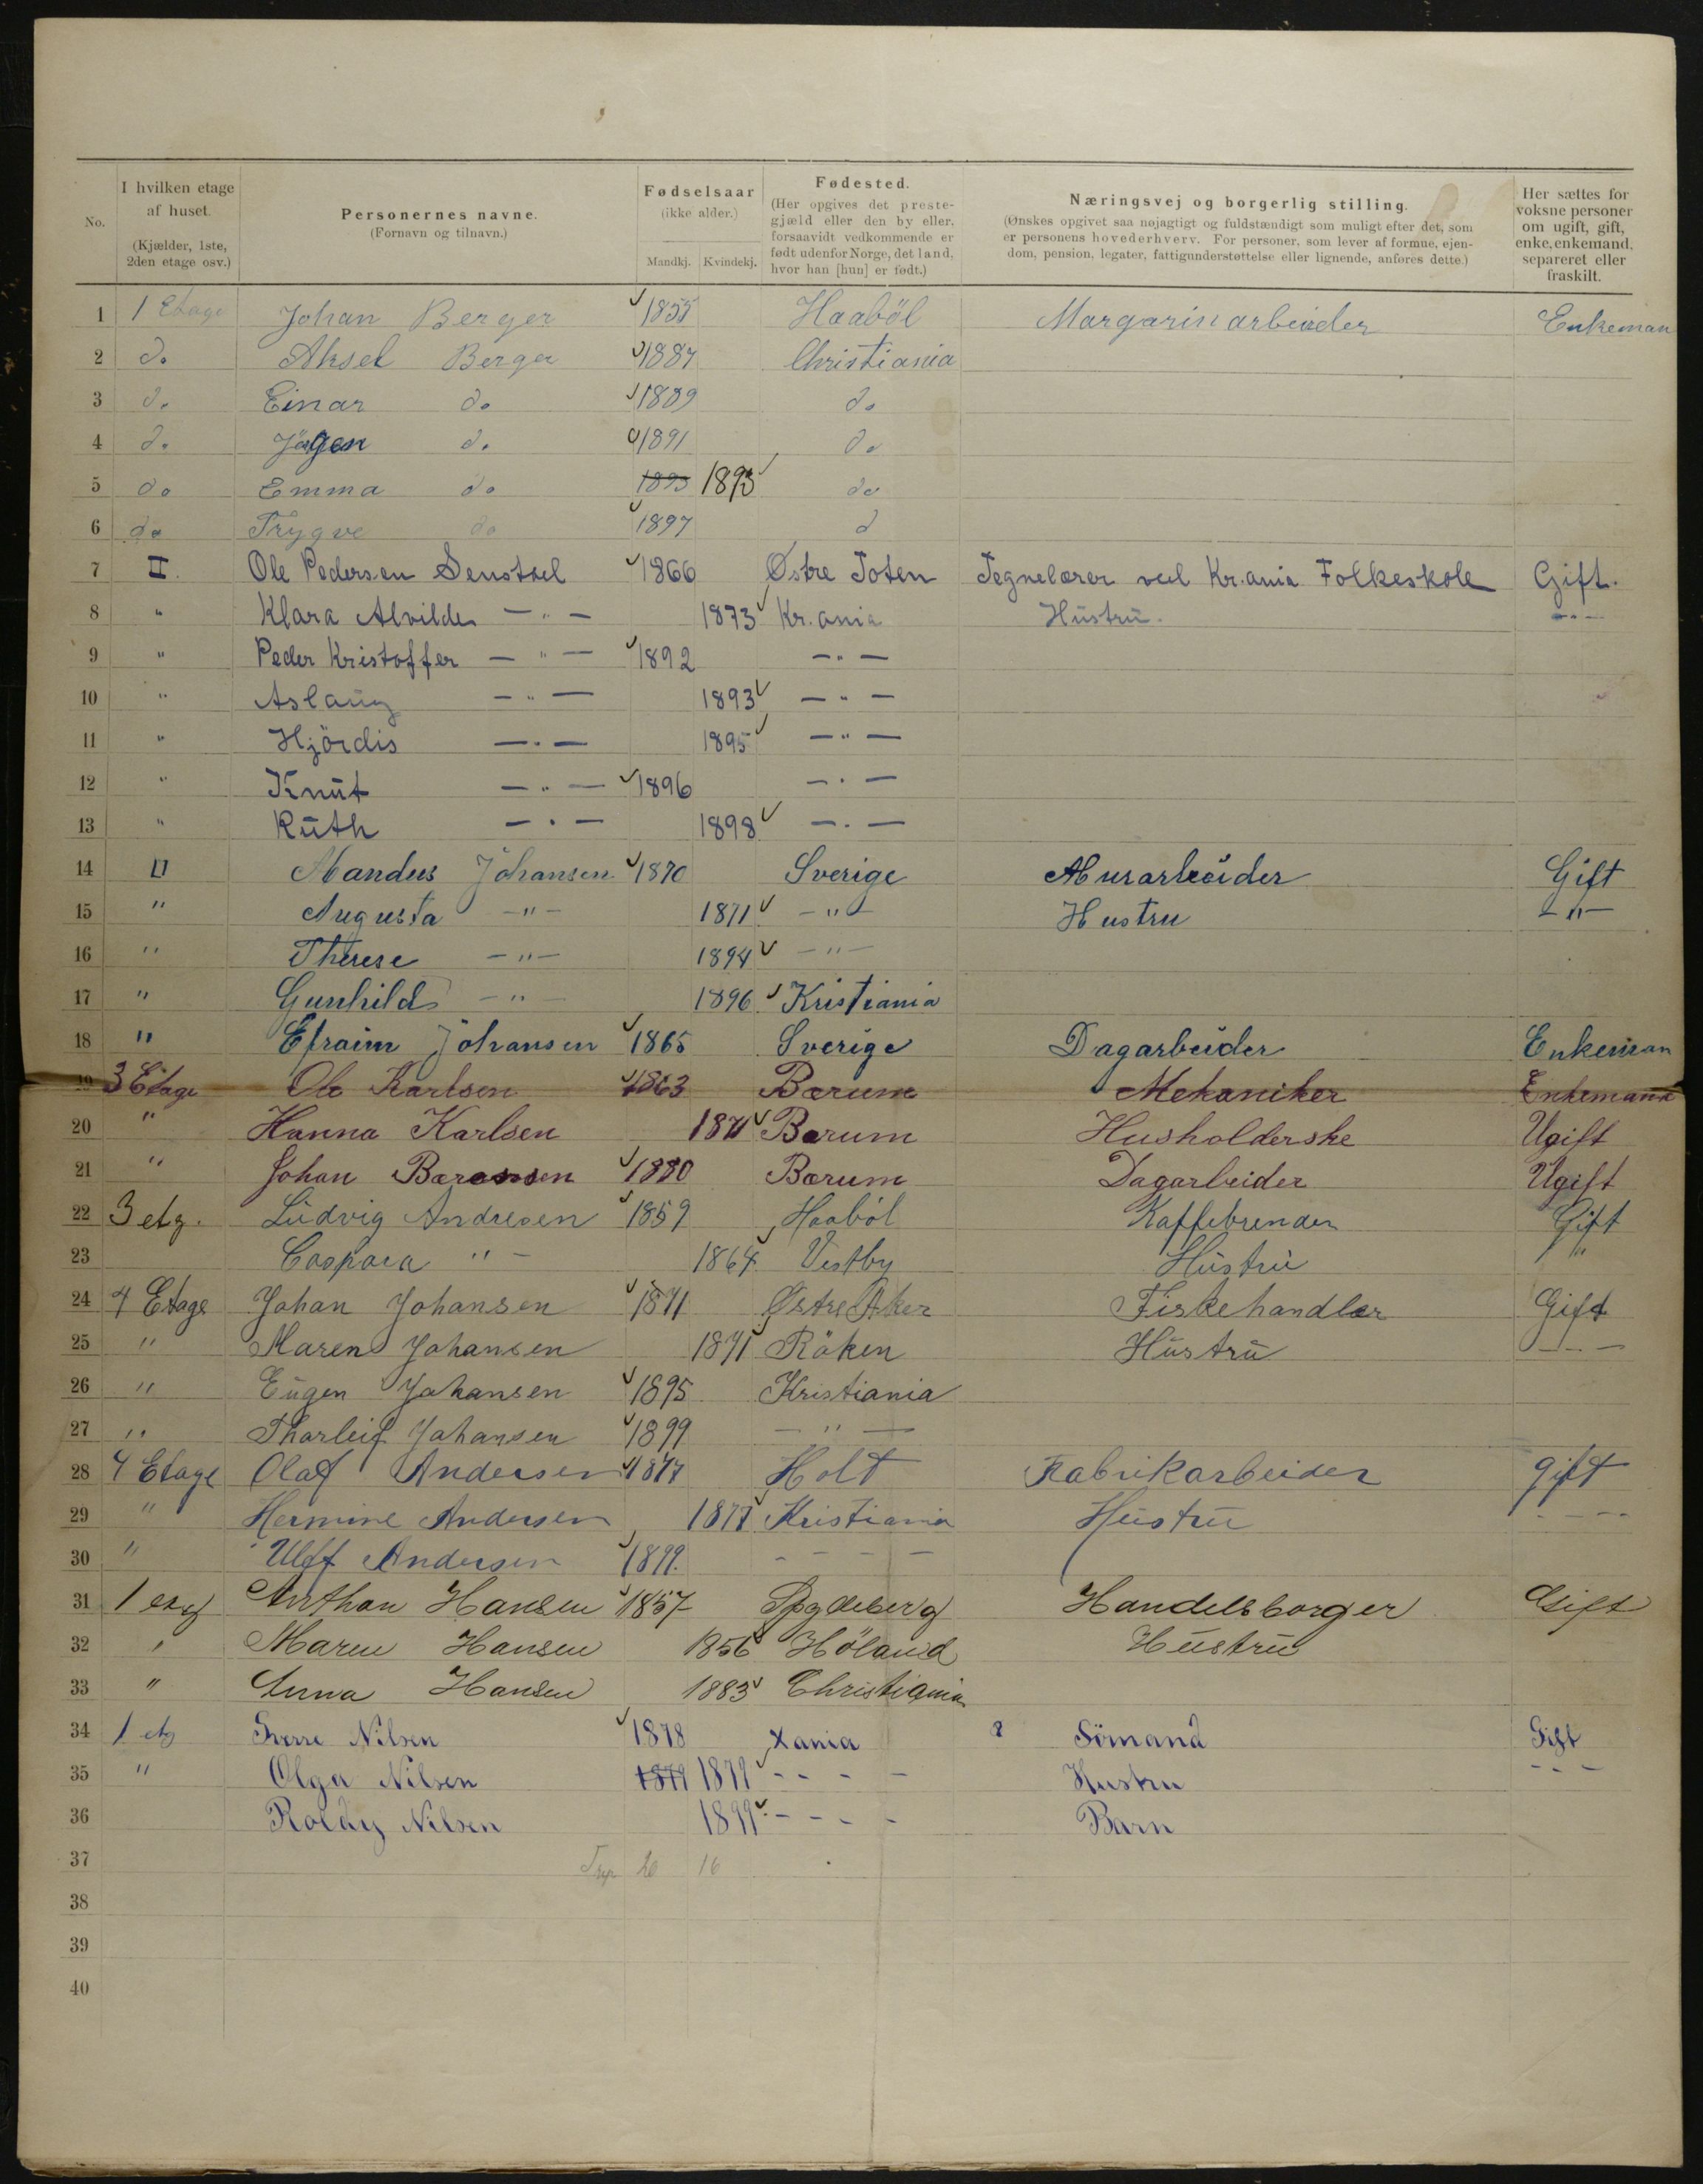 No.
I hvilken etage af huset. (Kjælder, 1ste, 2den etage osv.)
Personernes navne. (Fornavn og tilnavn.)
Fødselsaar (ikke alder.) Mandkj. Kvindekj.
Fødested. (Her opgives det prestegjæld eller den by eller, forsaavidt vedkommende er født udenfor Norge, det land, hvor han [hun] er født.)
Næringsvej og borgerlig stilling. (Ønskes opgivet saa nøjagtigt og fuldstændigt som muligt efter det, som er personens hovederhverv. For personer, som lever af formue, ejendom, pension, legater, fattigunderstøttelse eller lignende, anføres dette.)
Her sættes for voksne personer om ugift, gift, enke, enkemand, separeret eller fraskilt.
1 1 Etage Johan Berger 1855 Haaböl Margarinarbeider Enkeman
2 do Aksel Berger 1887 Christiania
3 do Einar do 1889 do
4 do Jörgen do 1891 do
5 do Emma do 1893 1893 do
6 do Trygve do 1897 d
7 II. Ole Pedersen Senstad 1866 Østre Toten Tegnelærer ved Kr.ania Folkeskole Gift.
8 " Klara Alvilde — " — 1873 Kr.ania Hustru. — " —
9 " Peder Kristoffer — " — 1892 — " —
10 " Aslaug — " — 1893 — " —
11 " Hjördis — " — 1895 — " —
12 " Knut — " — 1896 — " —
13 " Ruth — " — 1898 — " —
14 II Mandus Johansen 1870 Sverige Murarbeider Gift
15 " Augusta — " — 1871 — " — Hustru — " —
16 " Therese — " — 1894 — " —
17 " Gunhild — " — 1896 Kristiania
18 " Efraim Johansen 1865 Sverige Dagarbeider Enkeman
19 3 Etage Ole Karlsen 1863 Bærum Mekaniker Enkemann
20 " Hanna Karlsen 1871 Bærum Husholderske Ugift
21 " Johan 1880 Bærum Dagarbeider Ugift
22 3 etg. Ludvig Andresen 1859 Haaböl Kaffebrender Gift
23 Caspara " — 1864 Vestby Hustru "
24 4 Etage Johan Johansen 1871 Østre Aker Fiskehandler Gift
25 " Maren Johansen 1871 Röken Hustru — " —
26 " Eugen Johansen 1895 Kristiania
27 " Thorleif Johansen 1899 — " —
28 4 Etage Olaf Andersen 1877 Holt Fabrikarbeider gift
29 " Hermine Andersen 1877 Kristiania Hustru - - - -
30 " Ulf Andersen 1899. - - - -
31 1 etg Anthon Hansen 1857 Spydeberg Handelsborger Gift
32 " Maren Hansen 1856 Høland Hustru
33 " Anna Hansen 1883 Christiania
34 1 etg Sverre Nilsen 1878 Xania Sömand Gift
35 " Olga Nilsen 1879 1879 - - - - Hustru - - -
36 Nilsen 1899 - - - - Barn
37 20 16
38
39
40